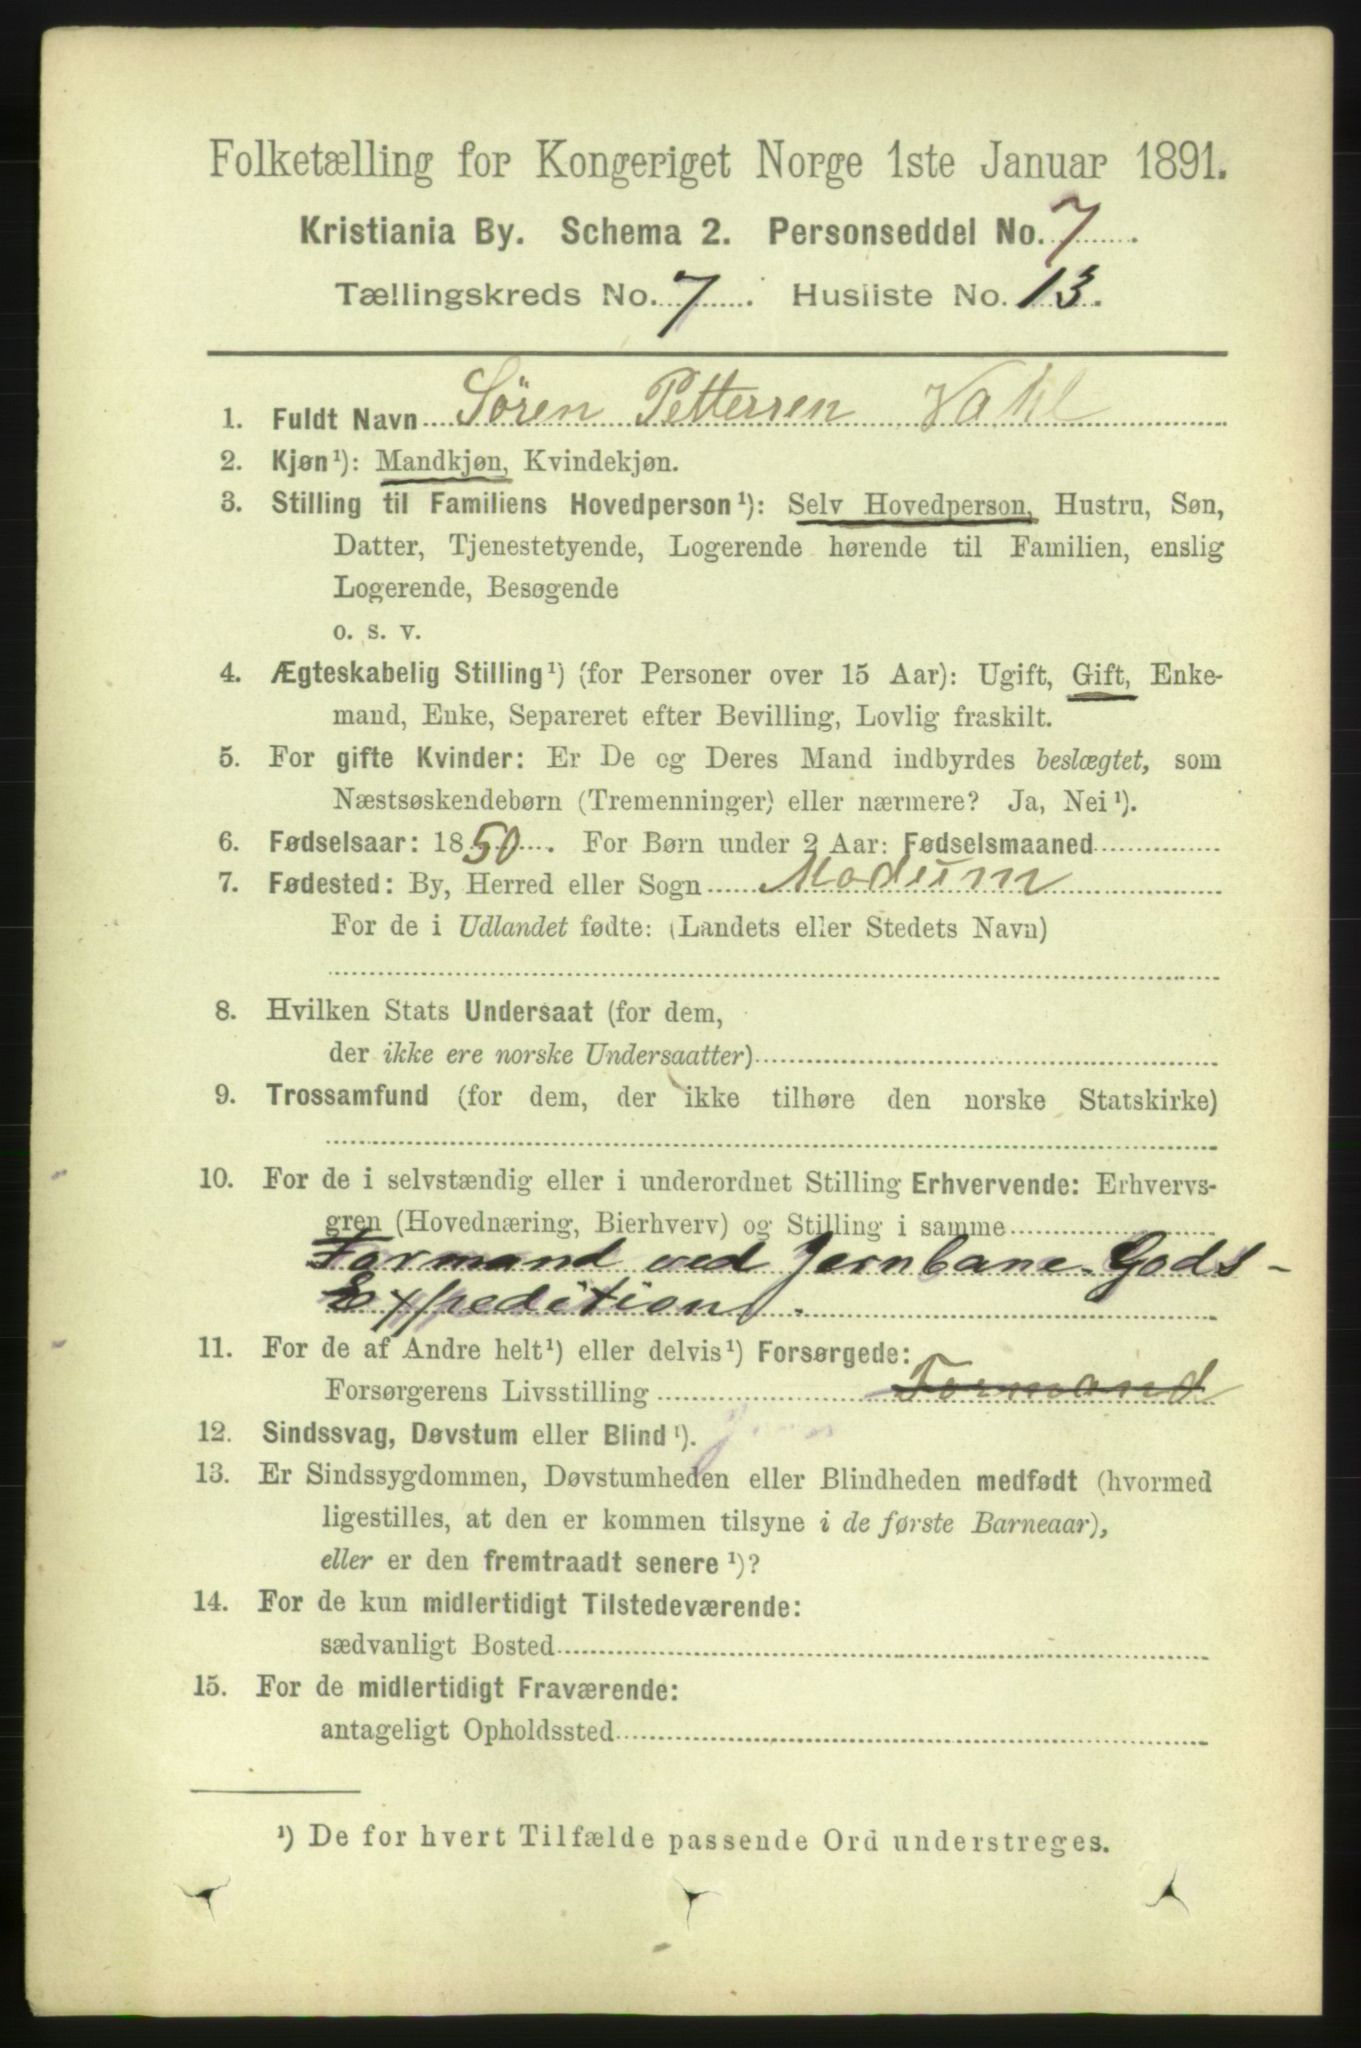 Folketælling for Kongeriget Norge 1ste Januar 1891.
Kristiania By. Schema 2. Personseddel No. 7
Tællingskreds No. 7. Husliste No. 13.
1. Fuldt Navn Søren Pettersen Vahl
2. Kjøn¹): Mandkjøn, Kvindekjøn.
3. Stilling til Familiens Hovedperson¹): Selv Hovedperson, Hustru, Søn,
Datter, Tjenestetyende, Logerende hørende til Familien, enslig
Logerende, Besøgende
o. s. v.
4. Ægteskabelig Stilling¹) (for Personer over 15 Aar): Ugift, Gift, Enke-
mand, Enke, Separeret efter Bevilling, Lovlig fraskilt.
5. For gifte Kvinder: Er De og Deres Mand indbyrdes beslægtet, som
Næstsøskendebørn (Tremenninger) eller nærmere? Ja, Nei¹).
6. Fødselsaar: 1850. For Børn under 2 Aar: Fødselsmaaned
7. Fødested: By, Herred eller Sogn Modum
For de i Udlandet fødte: (Landets eller Stedets Navn)
8. Hvilken Stats Undersaat (for dem,
der ikke ere norske Undersaatter)
9. Trossamfund (for dem, der ikke tilhøre den norske Statskirke)
10. For de i selvstændig eller i underordnet Stilling Erhvervende: Erhvervs-
gren (Hovednæring, Bierhverv) og Stilling i samme
Formand ved Jernbane-Gods-
Expedition.
11. For de af Andre helt¹) eller delvis¹) Forsørgede:
Forsørgerens Livsstilling Formand
12. Sindssvag, Døvstum eller Blind¹).
13. Er Sindssygdommen, Døvstumheden eller Blindheden medfødt (hvormed
ligestilles, at den er kommen tilsyne i de første Barneaar),
eller er den fremtraadt senere¹)?
14. For de kun midlertidigt Tilstedeværende:
sædvanligt Bosted
15. For de midlertidigt Fraværende:
antageligt Opholdssted
¹) De for hvert Tilfælde passende Ord understreges.